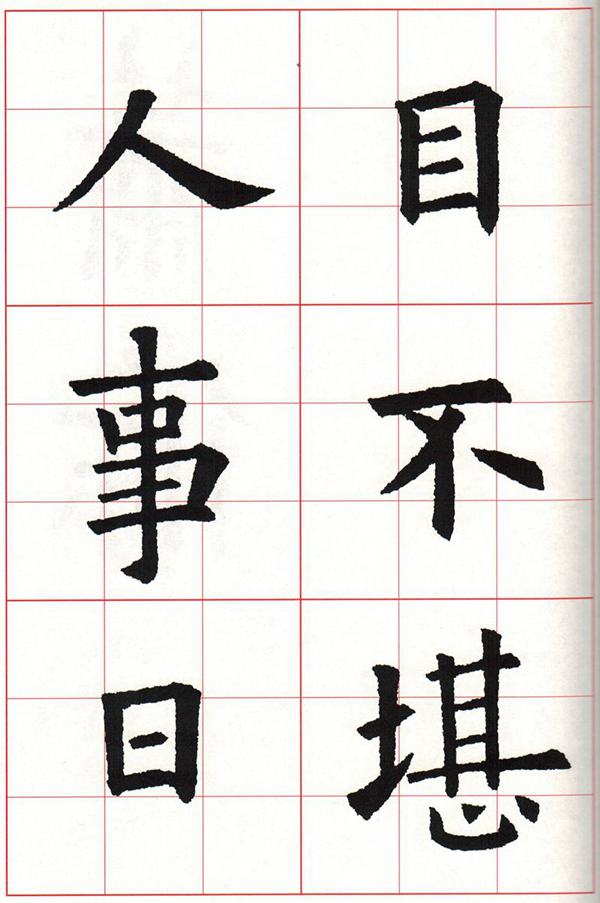 目不堪
人事日